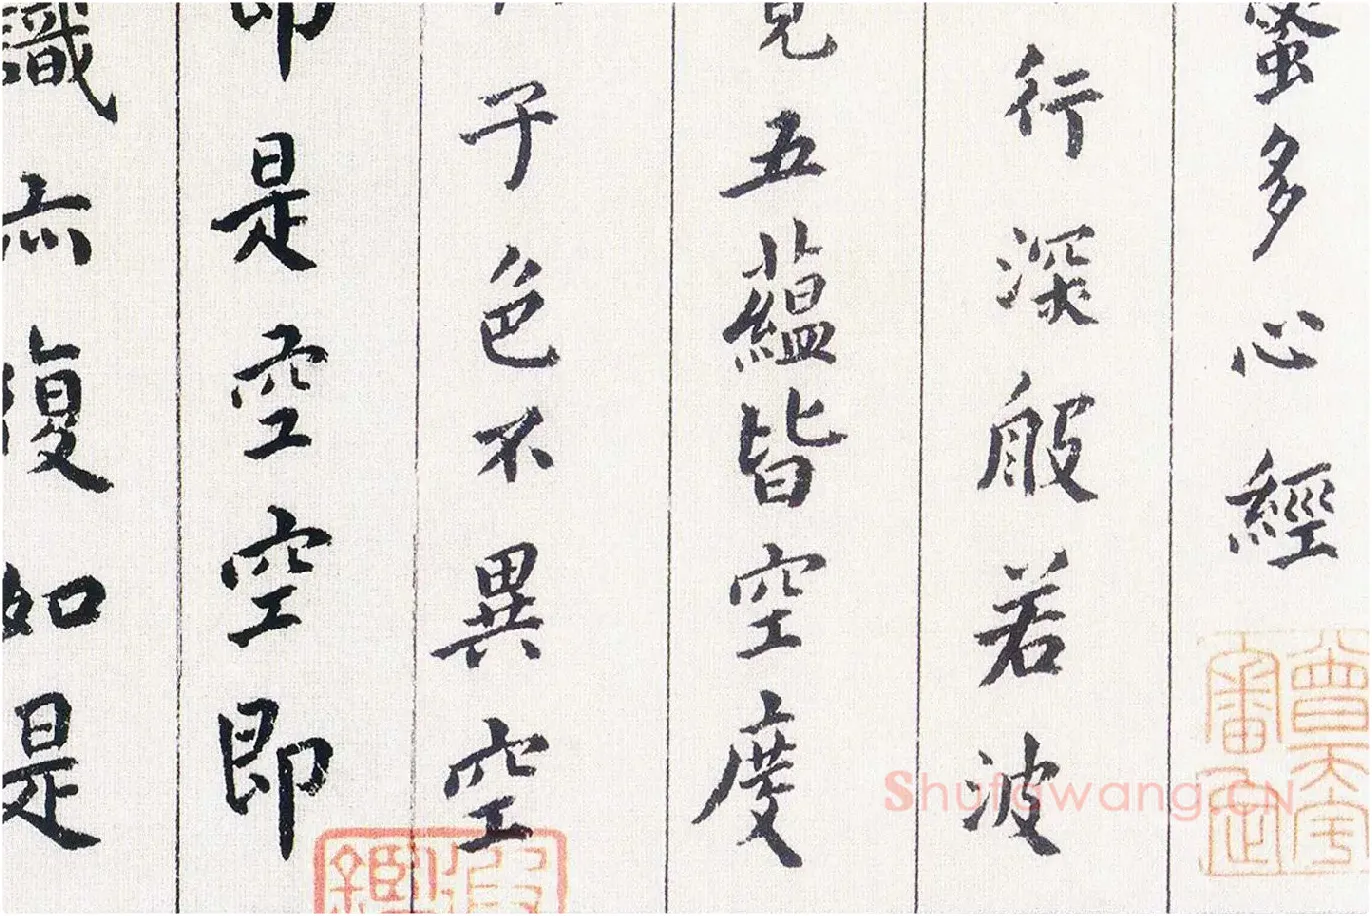 蜜多心經
行深般若波
見五蘊皆空度
子色不異空
即是空空即
識亦復如是
Shufawang.CN